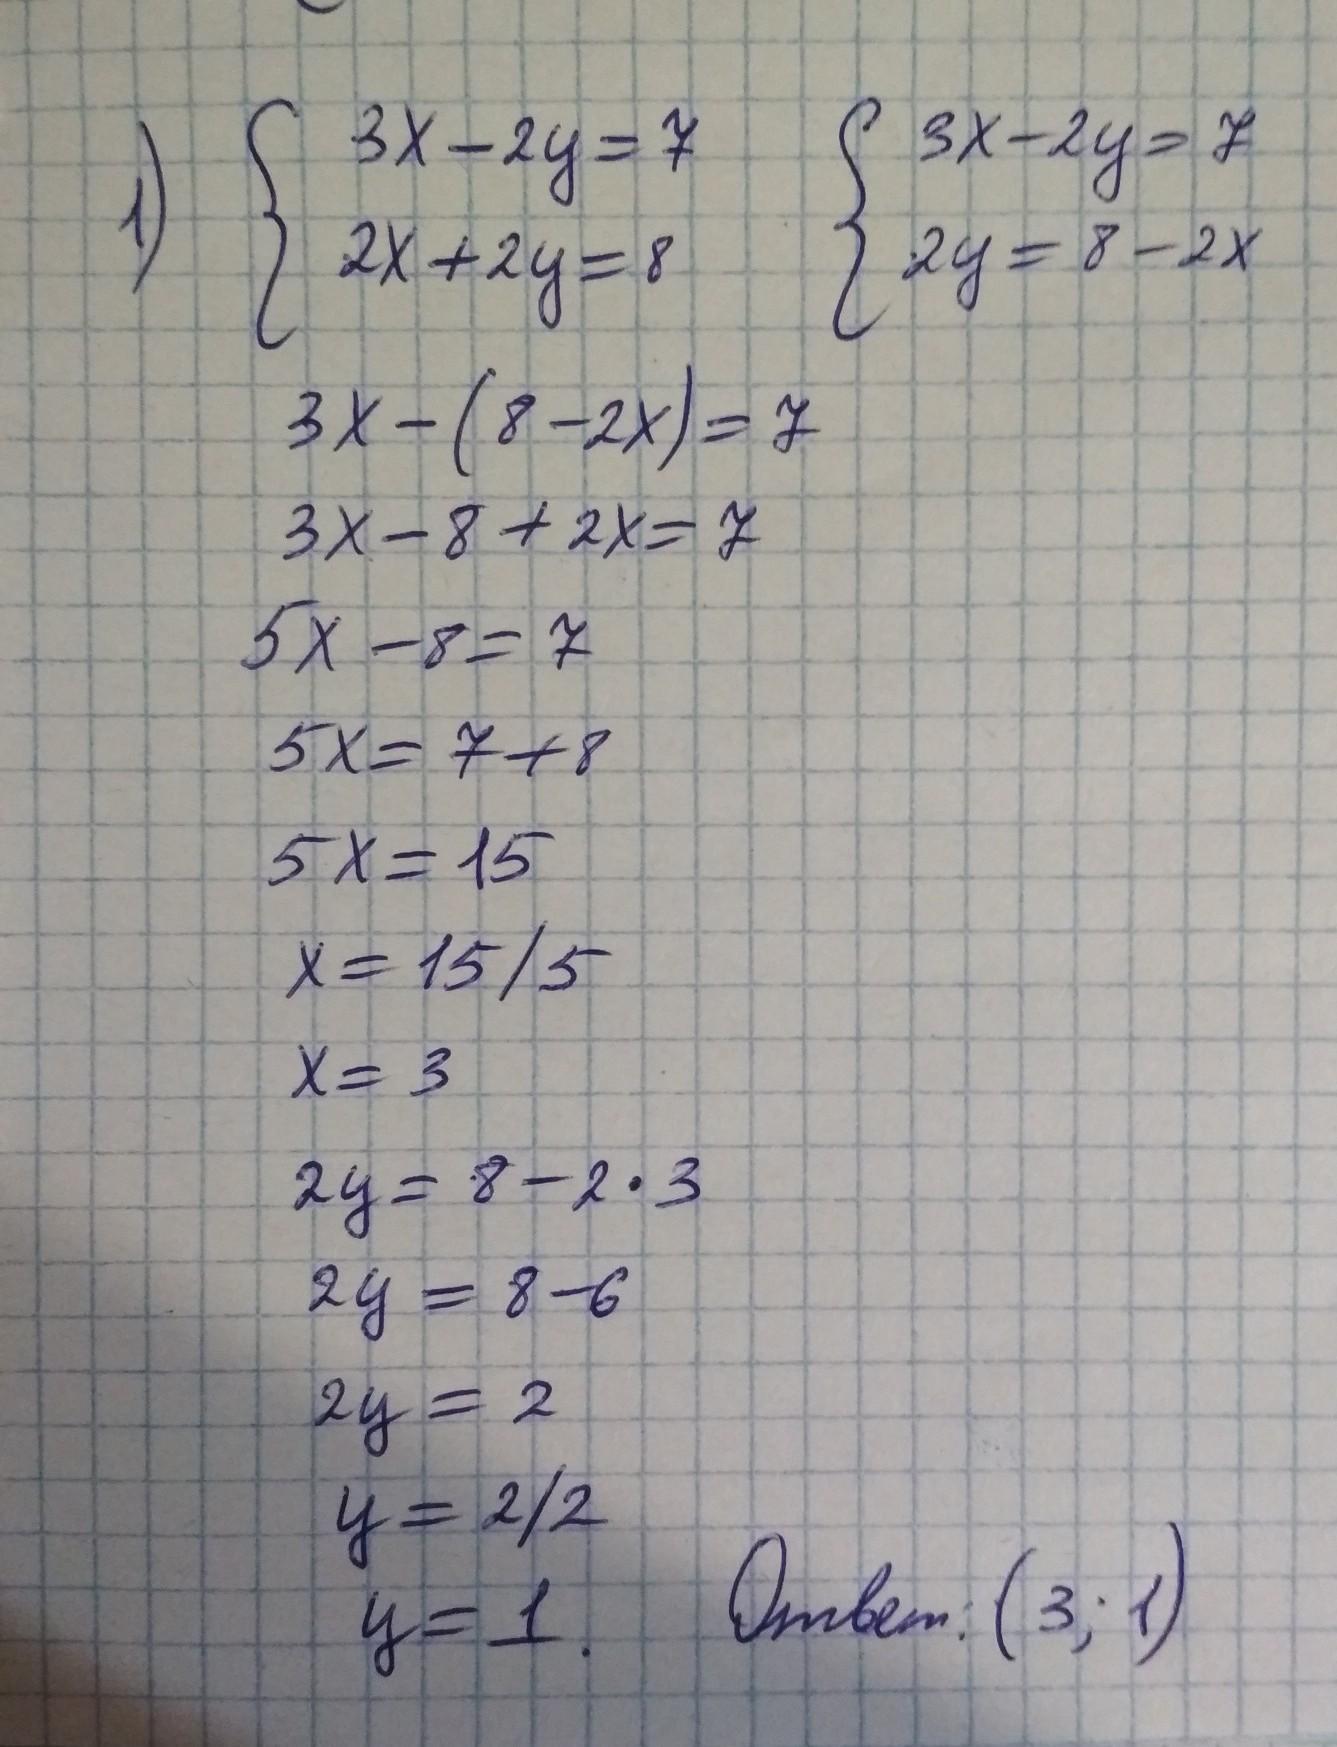 1) { 3x-2y=7 { 3x-2y=7
2x+2y=8 2y=8-2x
3x-(8-2x)=7
3x-8+2x=7
5x-8=7
5x=7+8
5x=15
x=15/5
x=3
2y=8-2·3
2y=8-6
2y=2
y=2/2
y=1. Ответ: (3; 1)